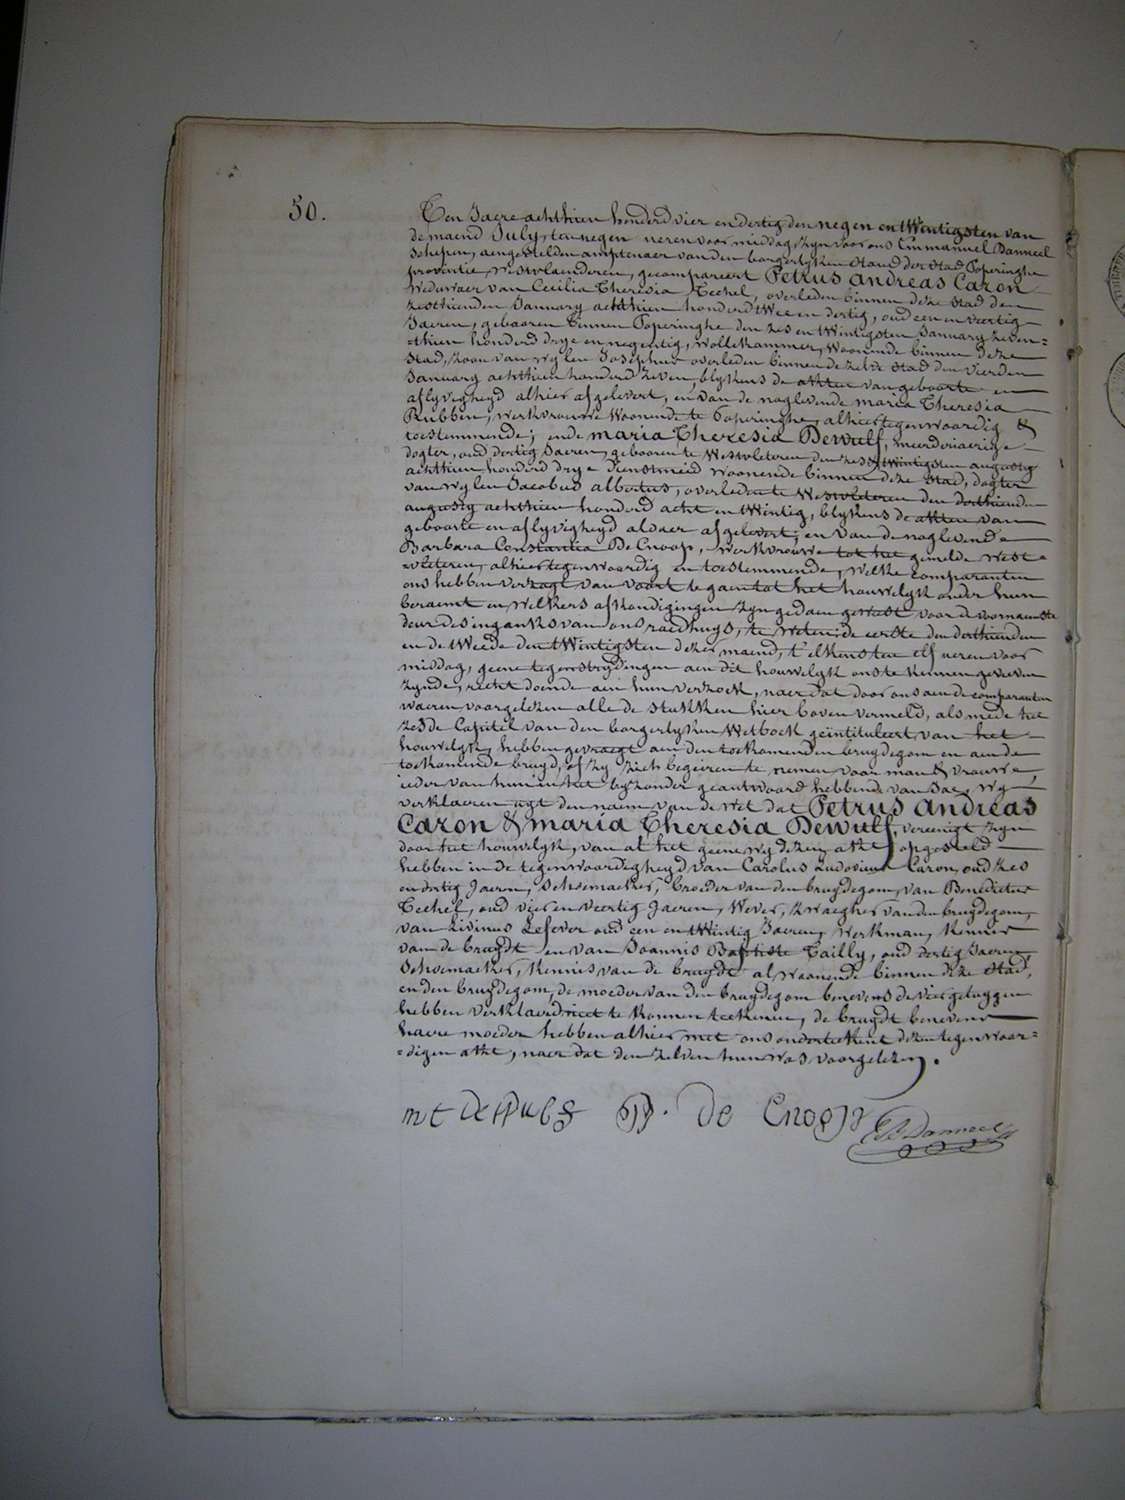 50.
Ten Jaere achthien honderd vier en dertig den negen en twintigsten van
de maend July, ten negen ueren voor middag, zyn voor ons Emmanuel Danneel
Schepen, aengestelden amptenaer van den borgerlyken stand der stad Poperinghe
provintie Westvlaenderen, gecompareert Petrus Andreas Caron
Weduwaer van Cecilia Theresia Techel, overleden binnen deze stad den
zesthienden January achthien honderd twee en dertig, oud een en veertig
Jaeren, gebooren binnen Poperinghe den zes en twintigsten January zeven=
=thien honderd drye en negentig, wollekammer, woonende binnen deze
stad, zoon van wylen Josephus overleden binnen dezelve stad den vierden
January achthien honderd zeven, blykens de akten van geboorte en
aflyvigheyd alhier afgelevert, en van de naglevende maria Theresia
Rubben, werkvrouwe woonende te Poperinghe, alhier tegenwoordig &
toestemmende; ende maria Theresia Dewulf, meerderjaerige
dogter, oud dertig Jaeren, gebooren te Westvleteren den zes & twintigsten augusty
achthien honderd drye dienstmeid woonende binnen deze stad, dogter
van wylen Jacobus albertus, overleden te Westvleteren den derthienden
augusty achthien honderd acht en twintig, blykens de akten van
geboorte en aflyvigheyd aldaer afgelevert; en van de naglevende
Barbara Constantia De Cnoop, werkvrouwe tot het gemelde West=
=vleteren, alhier tegenwoordig en toestemmende, welke comparanten
ons hebben verzogt van voort te gaen tot het houwelyk onder hun
beraemt en welkers afkondigingen zyn gedaen geweest voor de voornaemste
deur des ingangs van ons raedhuys, te weten: de eerste den derthienden
en de tweede den twintigsten dezer maend, t'elkens ten elf ueren voor
middag, geene tegenstrydingen aen dit houwelyk ons te kennen gegeven
zynde, recht doende aen hun verzoek, naer dat door ons aen de comparanten
waeren voorgelezen alle de stukken hier boven vermeld, als mede het
zesde Capitel van den borgerlyken Wetboek geïntituleert van het
houwelyk, hebben gevraegt aen den toekomenden bruydegom en aen de
toekomende bruyd, of zy zich begeiren te nemen voor man & vrouwe,
ieder van hun in het byzonder geantwoord hebbende van Jae, wy
verklaeren uyt den naem van de wet dat Petrus Andreas
Caron & maria Theresia Dewulf, vereenigt zyn
door het houwelyk, van al het geene wy dezen akt opgesteld
hebben in de tegenwoordigheyd van Carolus Ludovicus Caron, oud zes
en dertig Jaeren, schoemaeker, broeder van den bruydegom, van Benedictus
Techel, oud vier en veertig Jaeren, Wever, zwaegher van den bruydegom,
van Livinus Lefever oud een en twintig Jaeren, werkman, kennis
van de bruydt en van Joannis Baptiste Tailly, oud dertig Jaeren,
schoemaeker, kennis van de bruydt al woonende binnen deze stad,
en den bruydegom, de moeder van den bruydegom benevens de vier getuygen
hebben verklaerd niet te konnen teekenen, de bruydt benevens
haere moeder hebben alhier met ons onderteekent dezen tegenwoor=
=digen akt, naer dat den zelven hun was voorgelezen.
mt Dewulf
De Cnoop
E. Danneel